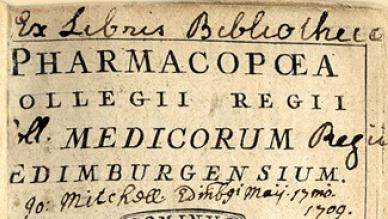 Ex Libris Bibliothec
PHARMACOPŒA
OLLEGII REGII
Coll. MEDICORUM Regii
EDIMBURGENSIUM.
Jo: Mitchell Edinbgi Maij 17mo.
1709.